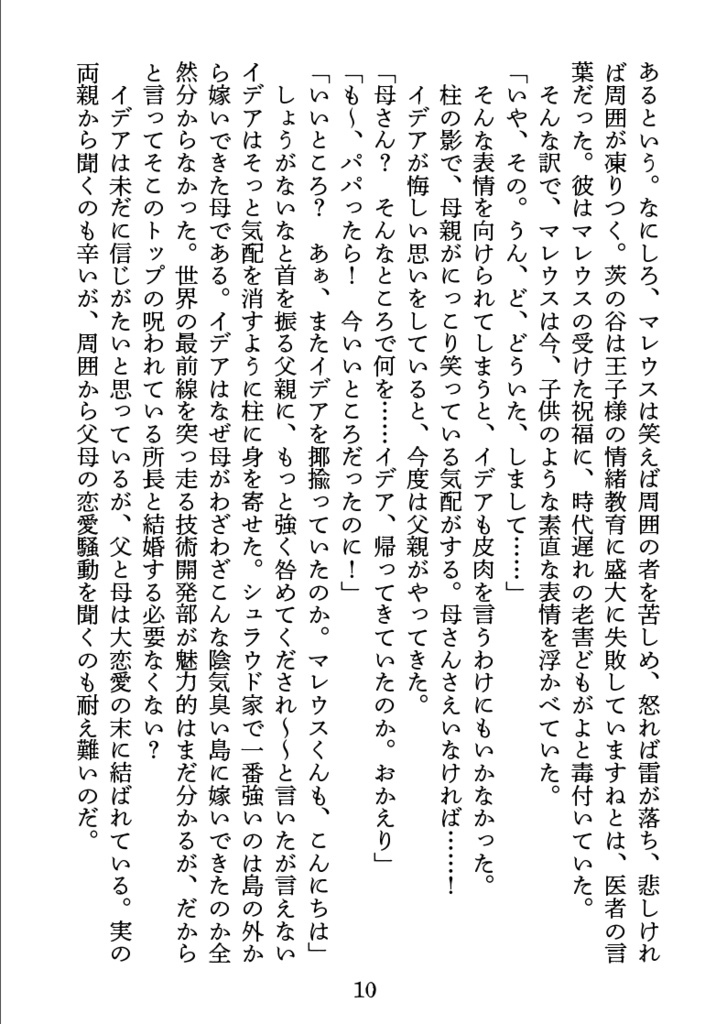 あるという。なにしろ、マレウスは笑えば周囲の者を苦しめ、怒れば雷が落ち、悲しけれ
ば周囲が凍りつく。茨の谷は王子様の情緒教育に盛大に失敗していますねとは、医者の言
葉だった。彼はマレウスの受けた祝福に、時代遅れの老害どもがよと毒付いていた。
そんな訳で、マレウスは今、子供のような素直な表情を浮かべていた。
「いや、その。うん、ど、どういた、しまして……」
そんな表情を向けられてしまうと、イデアも皮肉を言うわけにもいかなかった。
柱の影で、母親がにっこり笑っている気配がする。母さんさえいなければ……！
イデアが悔しい思いをしていると、今度は父親がやってきた。
「母さん？　そんなところで何を……イデア、帰ってきていたのか。おかえり」
「も～、パパったら！　今いいところだったのに！」
「いいところ？　あぁ、またイデアを揶揄っていたのか。マレウスくんも、こんにちは」
しょうがないなと首を振る父親に、もっと強く咎めてくだされ～～と言いたが言えない
イデアはそっと気配を消すように柱に身を寄せた。シュラウド家で一番強いのは島の外か
ら嫁いできた母である。イデアはなぜ母がわざわざこんな陰気臭い島に嫁いできたのか全
然分からなかった。世界の最前線を突っ走る技術開発部が魅力的はまだ分かるが、だから
と言ってそこのトップの呪われている所長と結婚する必要なくない？
イデアは未だに信じがたいと思っているが、父と母は大恋愛の末に結ばれている。実の
両親から聞くのも辛いが、周囲から父母の恋愛騒動を聞くのも耐え難いのだ。
10